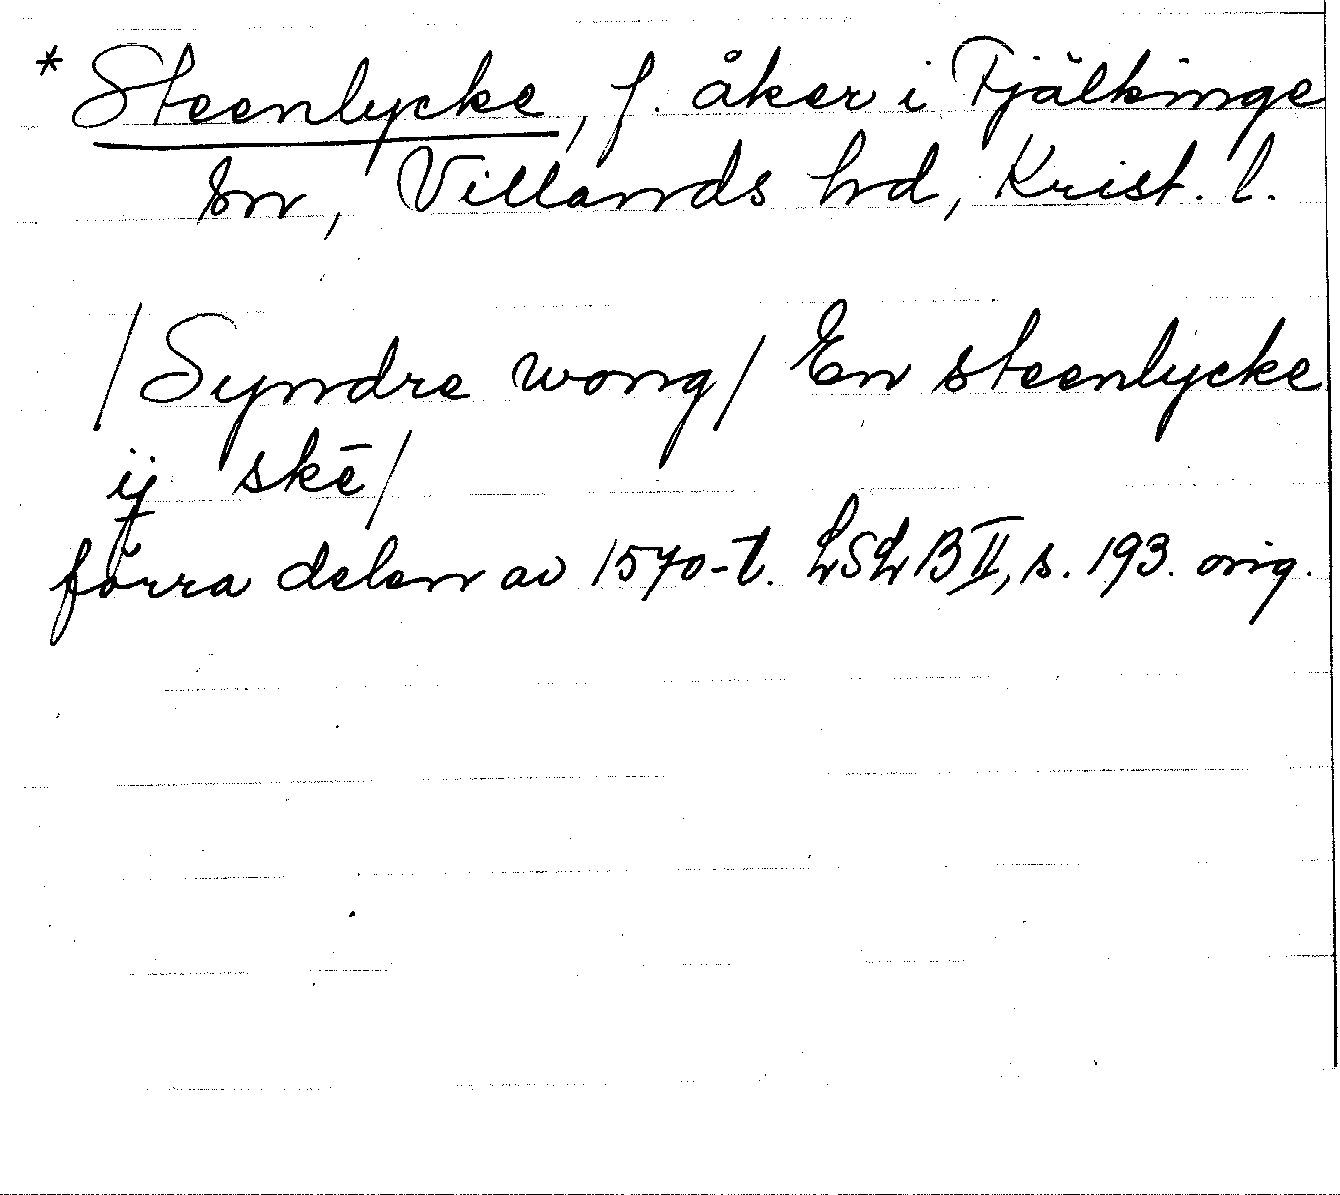 * Steenlycke, f. åker i Fjälkinge
sn, Villands hd, Krist. l.
/Syndre wong/ En steenlycke
ij skē/
förra delen av 1570-t. LSLB II, s. 193. orig.